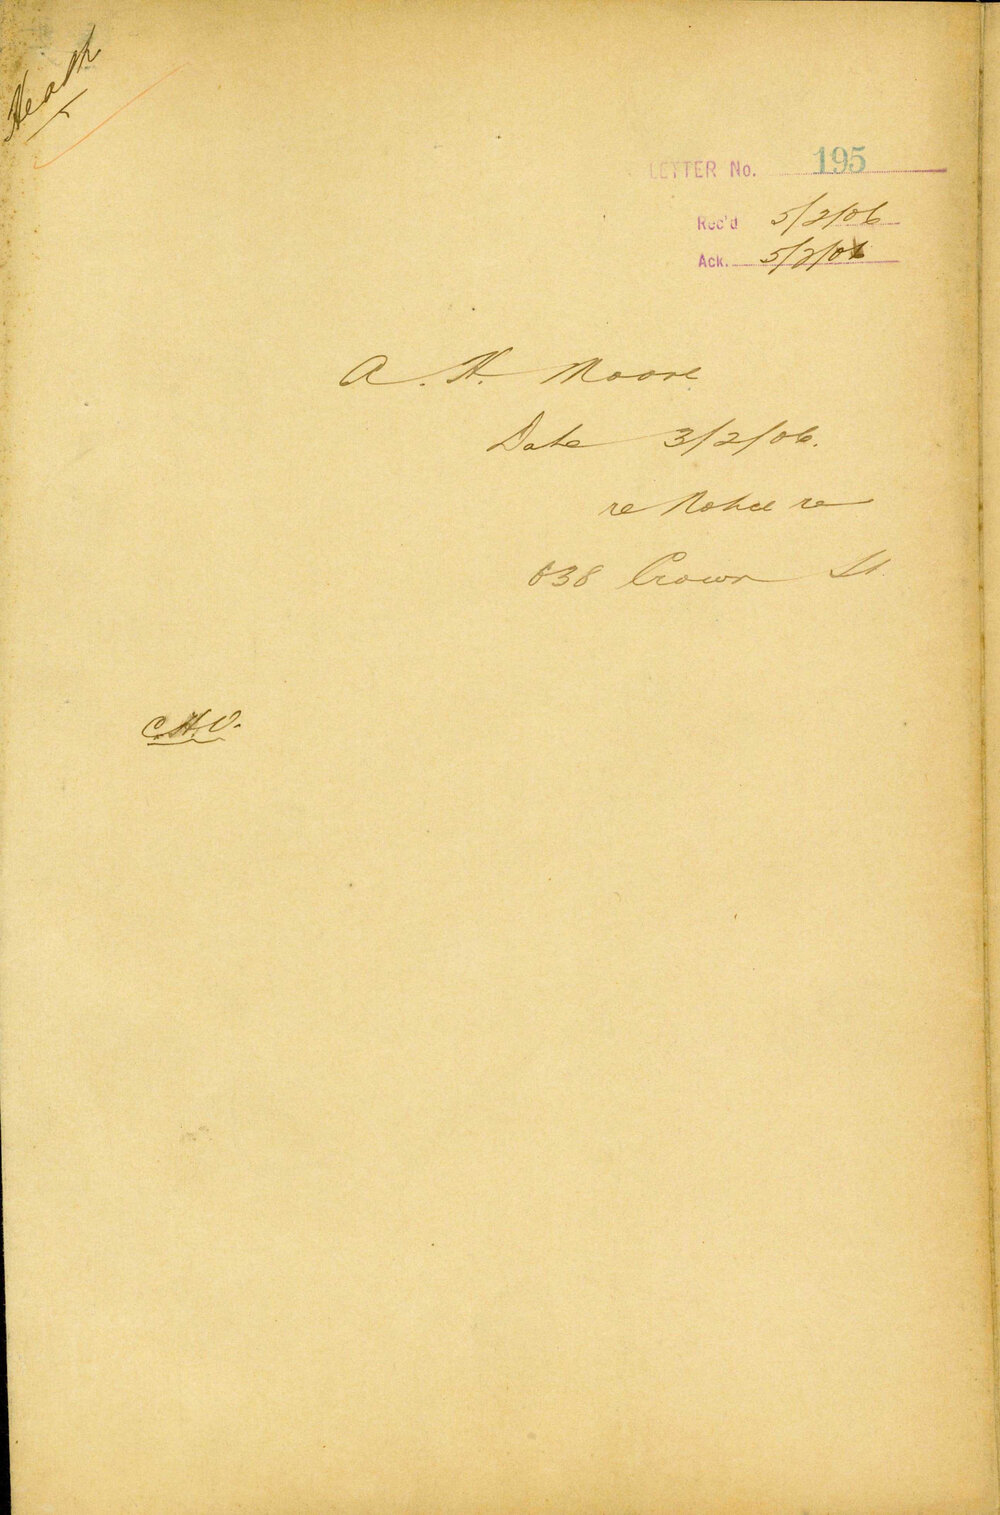 Health
LETTER No. 195
Rec'd 5/2/06
Ack. 5/2/06
A. H. Moore
Date 3/2/06.
re Notice re
638 Crown St.
C.H.O.